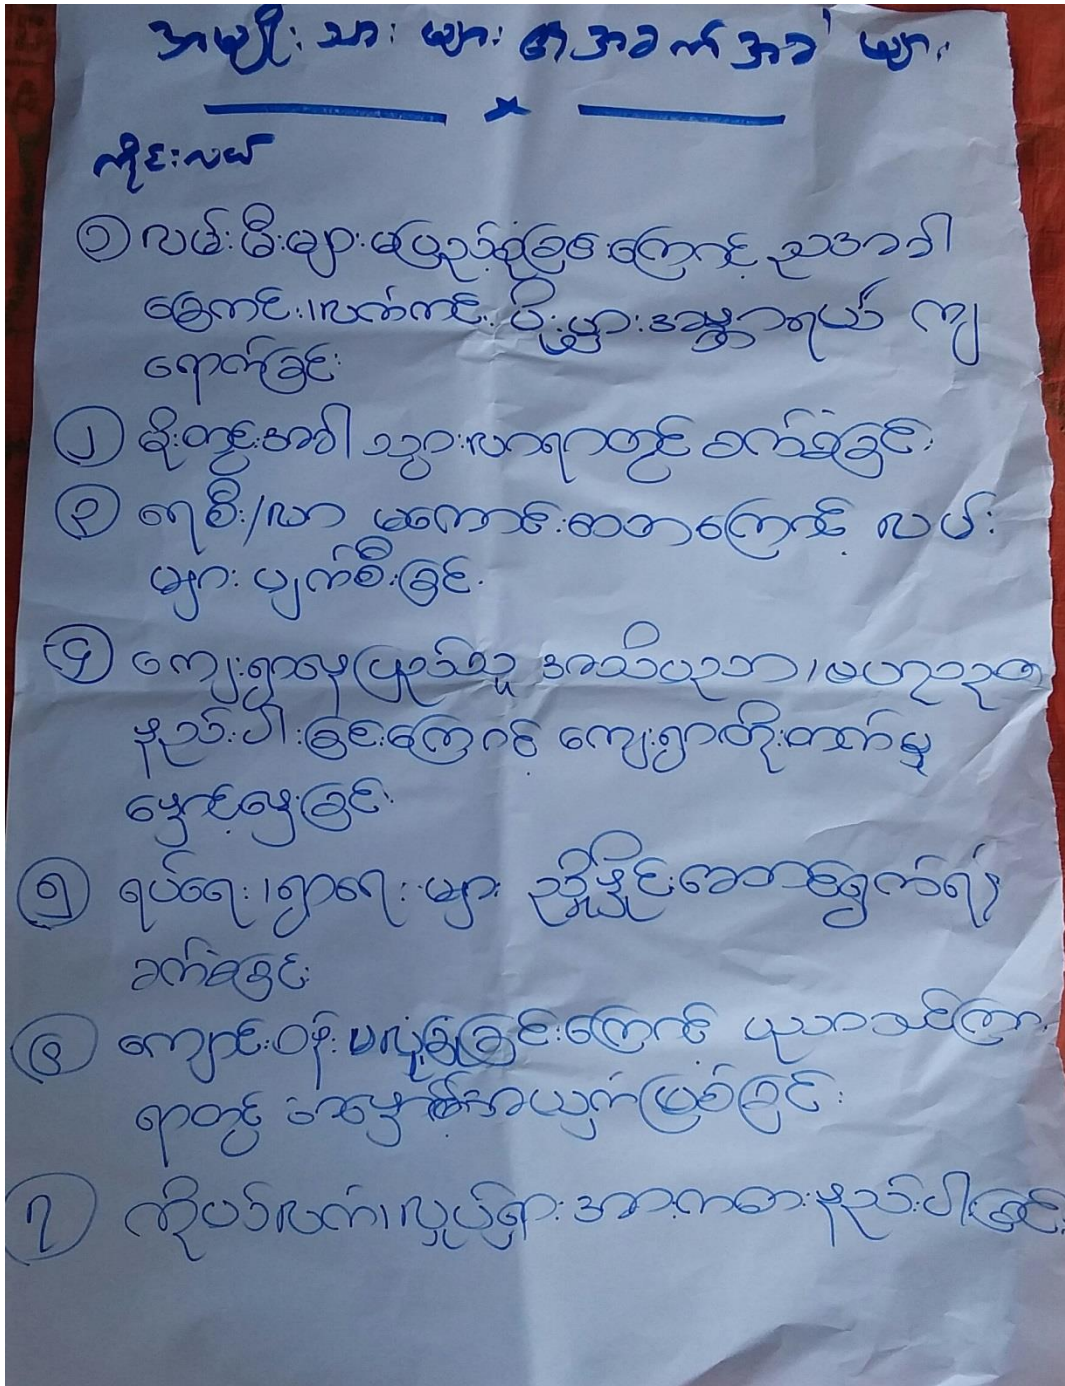 အမျိုးသားများ၏အခက်အခဲများ
ကိုင်းလယ်
၁ လမ်းမီးများမပြည့်စုံခြင်းကြောင့် ညအခါ
မြွေကင်း၊လက်ကင်း ပိုးမွှားအန္တာရယ် ကျ
ရောက်ခြင်း
၂ မိုးတွင်းအခါ သွားလာရာတွင် ခက်ခဲခြင်း
၃ ရေစီး/လာ မကောင်းသောကြောင့် လမ်း
များ ပျက်စီးခြင်း
၄ ကျေးရွာနေပြည်သူ အသိပညာ၊ဗဟုသုတ
နည်းပါးခြင်းကြောင့် ကျေးရွာတိုးတက်မှု
နှောင့်နှေးခြင်း
၅ ရပ်ရေး၊ရွာရေးများ ညှိနှိုင်းဆောင်ရွက်ရန်
ခက်ခဲခြင်း
၆ ကျောင်းဝန်းမလုံခြုံခြင်းကြောင့် ပညာသင်ကြား
ရာတွင် အနှောင့်အယှက်ဖြစ်ခြင်း
၇ ကိုယ်လက်၊လှုပ်ရှားအားကစားနည်းပါးခြင်း